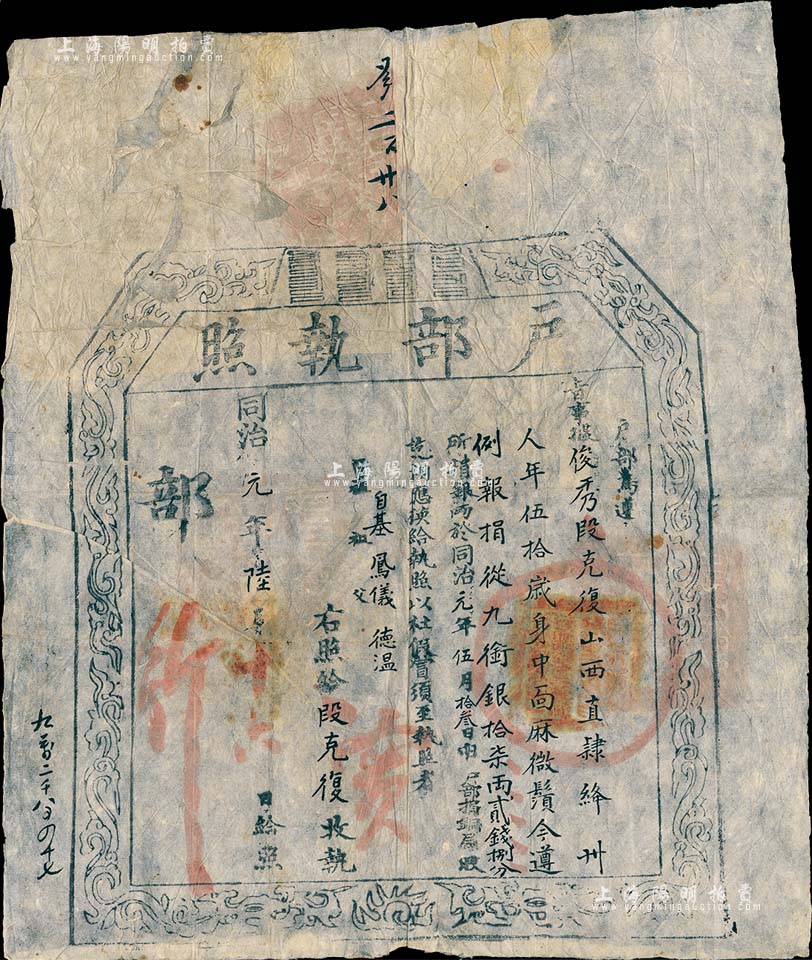 上海陽明拍賣
www.yangmingauction.com
上海陽明拍賣
www.yangmingauction.com
二百廿八
戶部執照
戶部為遵
旨事據俊秀段克復山西直隸絳州
人年伍拾歲身中面麻微鬚今遵
例報捐從九銜銀拾柒両貳錢捌分
所捐銀両於同治元年伍月拾叁日由戶部捐銅局收
訖相應換給執照以杜假冒須至執照者
自基
祖鳳儀
父德温
右照給段克復收執
同治元年陸月
日給照
部
行
九百二十八百四十七
上海陽明拍賣
www.yangmingauction.com
上海陽明拍賣
www.yangmingauction.com